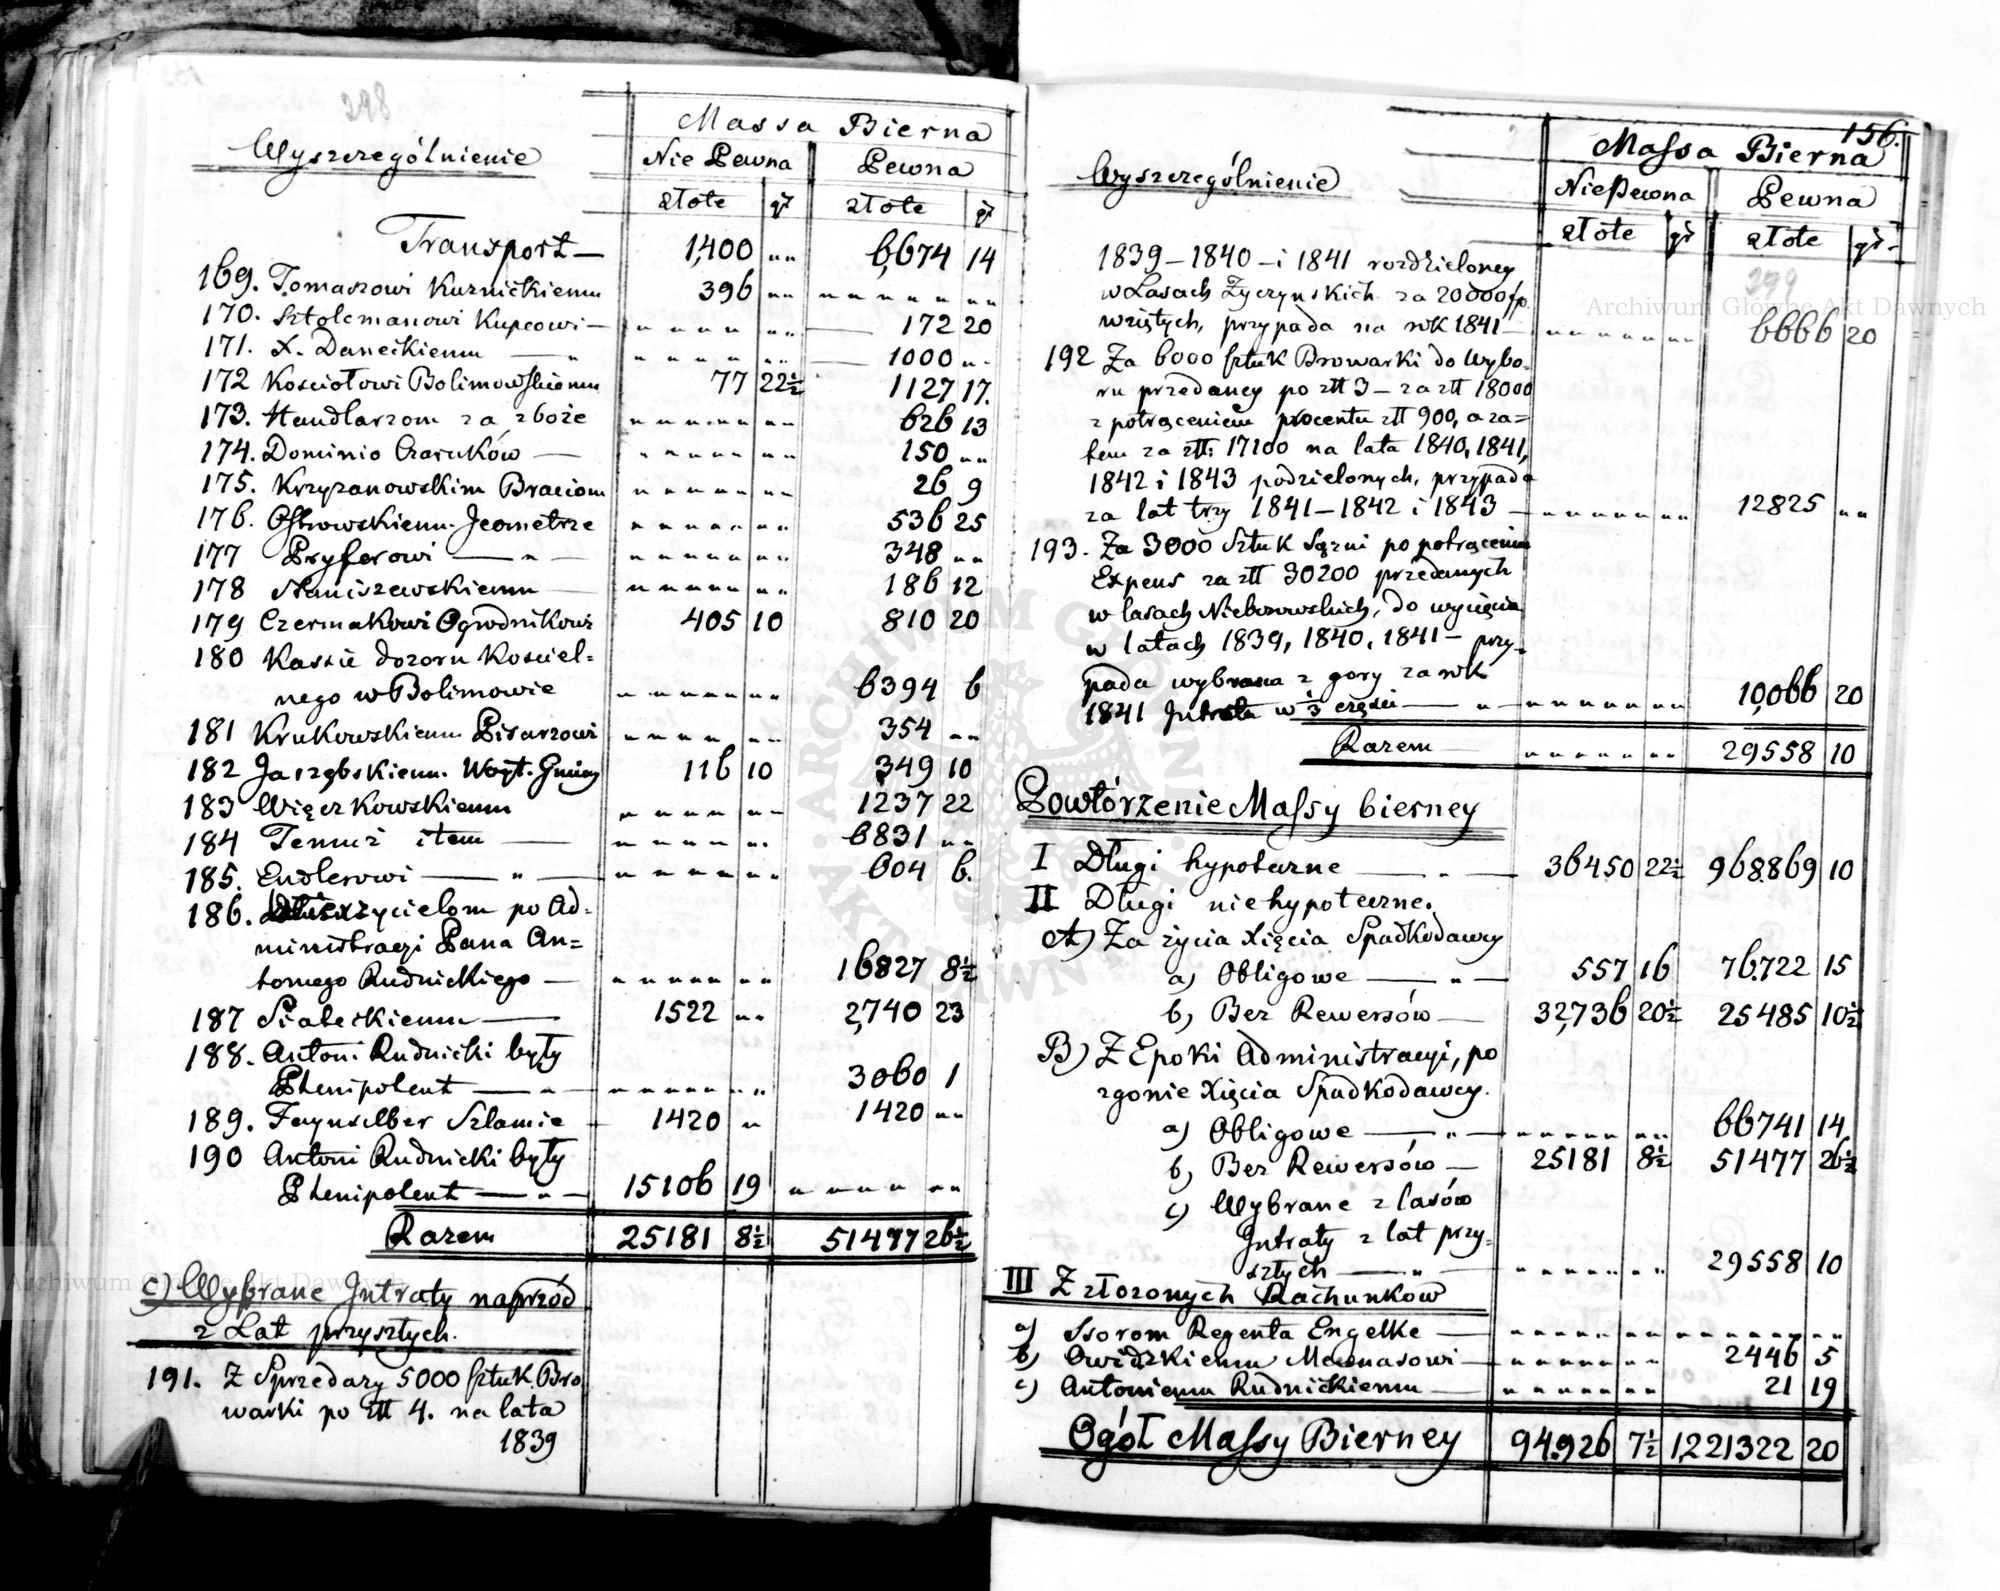 298
Wyszczególnienie
Massa Bierna
Nie Pewna Pewna
złote gr złote gr
Transport — 1,400 „ „ 6,674 14
169. Tomaszowi Kuznickiemu 396 „ „ „ „ „ „ „ „ „
170. Sztolcmanowi Kupcowi — „ „ „ „ „ „ „ — 172 20
171. X. Daneckiemu — „ „ „ „ „ „ „ „ — 1000 „ „
172 Kosciołowi Bolimowskiemu 77 22½ 1127 17.
173. Handlarzom za zboże „ „ „ „ „ „ „ 626 13
174. Dominio Czaruków — „ „ „ „ „ „ „ 150 „ „
175. Krzyzanowskim Braciom „ „ „ „ „ „ „ 26 9
176. Ostrowskiemu Jeometrze „ „ „ „ „ „ „ 536 25
177 Pryferowi — „ — „ „ „ „ „ „ „ 348 „ „
178 Staniszewskiemu — „ „ „ „ „ „ „ 186 12
179 Czermakowi Ogrodnikowi 405 10 810 20
180 Kassie dozoru Kosciel=
nego w Bolimowie „ „ „ „ „ „ „ 6394 6
181 Krukowskiemu Pisarzowi „ „ „ „ „ „ 354 „ „
182 Jarzębskiemu. Woyt. Gminy 116 10 349 10
183 Więczkowskiemu „ „ „ „ „ „ „ 1237 22
184 Temuż item — „ „ „ „ „ „ „ 6831 „ „
185. Endlerowi — „ — „ „ „ „ „ „ „ 604 6.
186. po Ad=
ministracyi Pana An=
toniego Rudnickiego — „ „ „ „ „ „ „ 16827 8½
187 Siateckiemu — 1522 „ „ 2,740 23
188. Antoni Rudnicki były
Plenipotent — „ — „ „ „ „ „ „ „ 3060 1
189. Faynzilber Szlamie — 1420 „ 1420 „ „
190 Antoni Rudnicki były
Plenipotent — „ — 15106 19 „ „ „ „ „ „
Razem 25181 8½ 51477 26½
c) Wybrane Intraty naprzód
z Lat przysztych.
191. Z Sprzedarzy 5000 sztuk Bro
warki po złt 4. na lata
1839
156.
Wyszczególnienie
Massa Bierna
Nie Pewna Pewna
złote gr złote gr.
299
1839 — 1840 — i 1841 rozdzieloney
w Lasach Zyczynskich za 20000 fp.
wziętych, przypada na rok 1841 — „ „ „ „ „ „ „ 6666 20
192 Za 6000 sztuk Browarki do wybo=
ru przedaney po złt 3 — za złt 18000
z potrąceniem procentu złt 900, a za=
tem za złt: 17100 na lata 1840, 1841,
1842 i 1843 podzielonych, przypada
za lat trzy 1841 — 1842 i 1843 — „ „ „ „ „ „ „ 12825 „ „
193. Za 3000 Sztuk Sązni po potrąceniu
Expens za złt 30200 przedanych
w lasach Nieborowskich, do wycięcia
w latach 1839, 1840, 1841 — przy=
pada wybrana z gory za rok
1841 Intrata w ⅓ części — „ — „ „ „ „ „ „ „ 10,066 20
Razem — „ „ „ „ „ „ „ 29558 10
Powtórzenie Massy bierney
I Długi hypoteczne — „ — 36450 22½ 968869 10
II Długi niehypoteczne.
A) Za życia Xięcia Spadkodawcy
a) Obligowe — „ — 557 16 76722 15
b) Bez Rewersów — 32,736 20½ 25485 10½
B) Z Epoki Administracyi, po
zgonie Xięcia Spadkodawcy.
a) Obligowe — „ — „ „ „ „ „ „ „ 66741 14
b) Bez Rewersów — 25181 8½ 51477 26½
c) Wybrane z lasów
Intraty z lat przy=
sztych — „ — „ „ „ „ „ „ „ 29558 10
III Z złozonych Rachunkow
a) Ssorom Regenta Engelke — „ „ „ „ „ „ „ „ „ „ „ „ „ „
b) Owidzkiemu — „ „ „ „ „ „ „ 2446 5
c) Antoniemu Rudnickiemu — „ „ „ „ „ „ „ 21 19
Ogół Massy Bierney 94,926 7½ 1,221322 20
Archiwum Główne Akt Dawnych
Archiwum Główne Akt Dawnych
ARCHIWUM GŁÓWNE AKT DAWNYCH